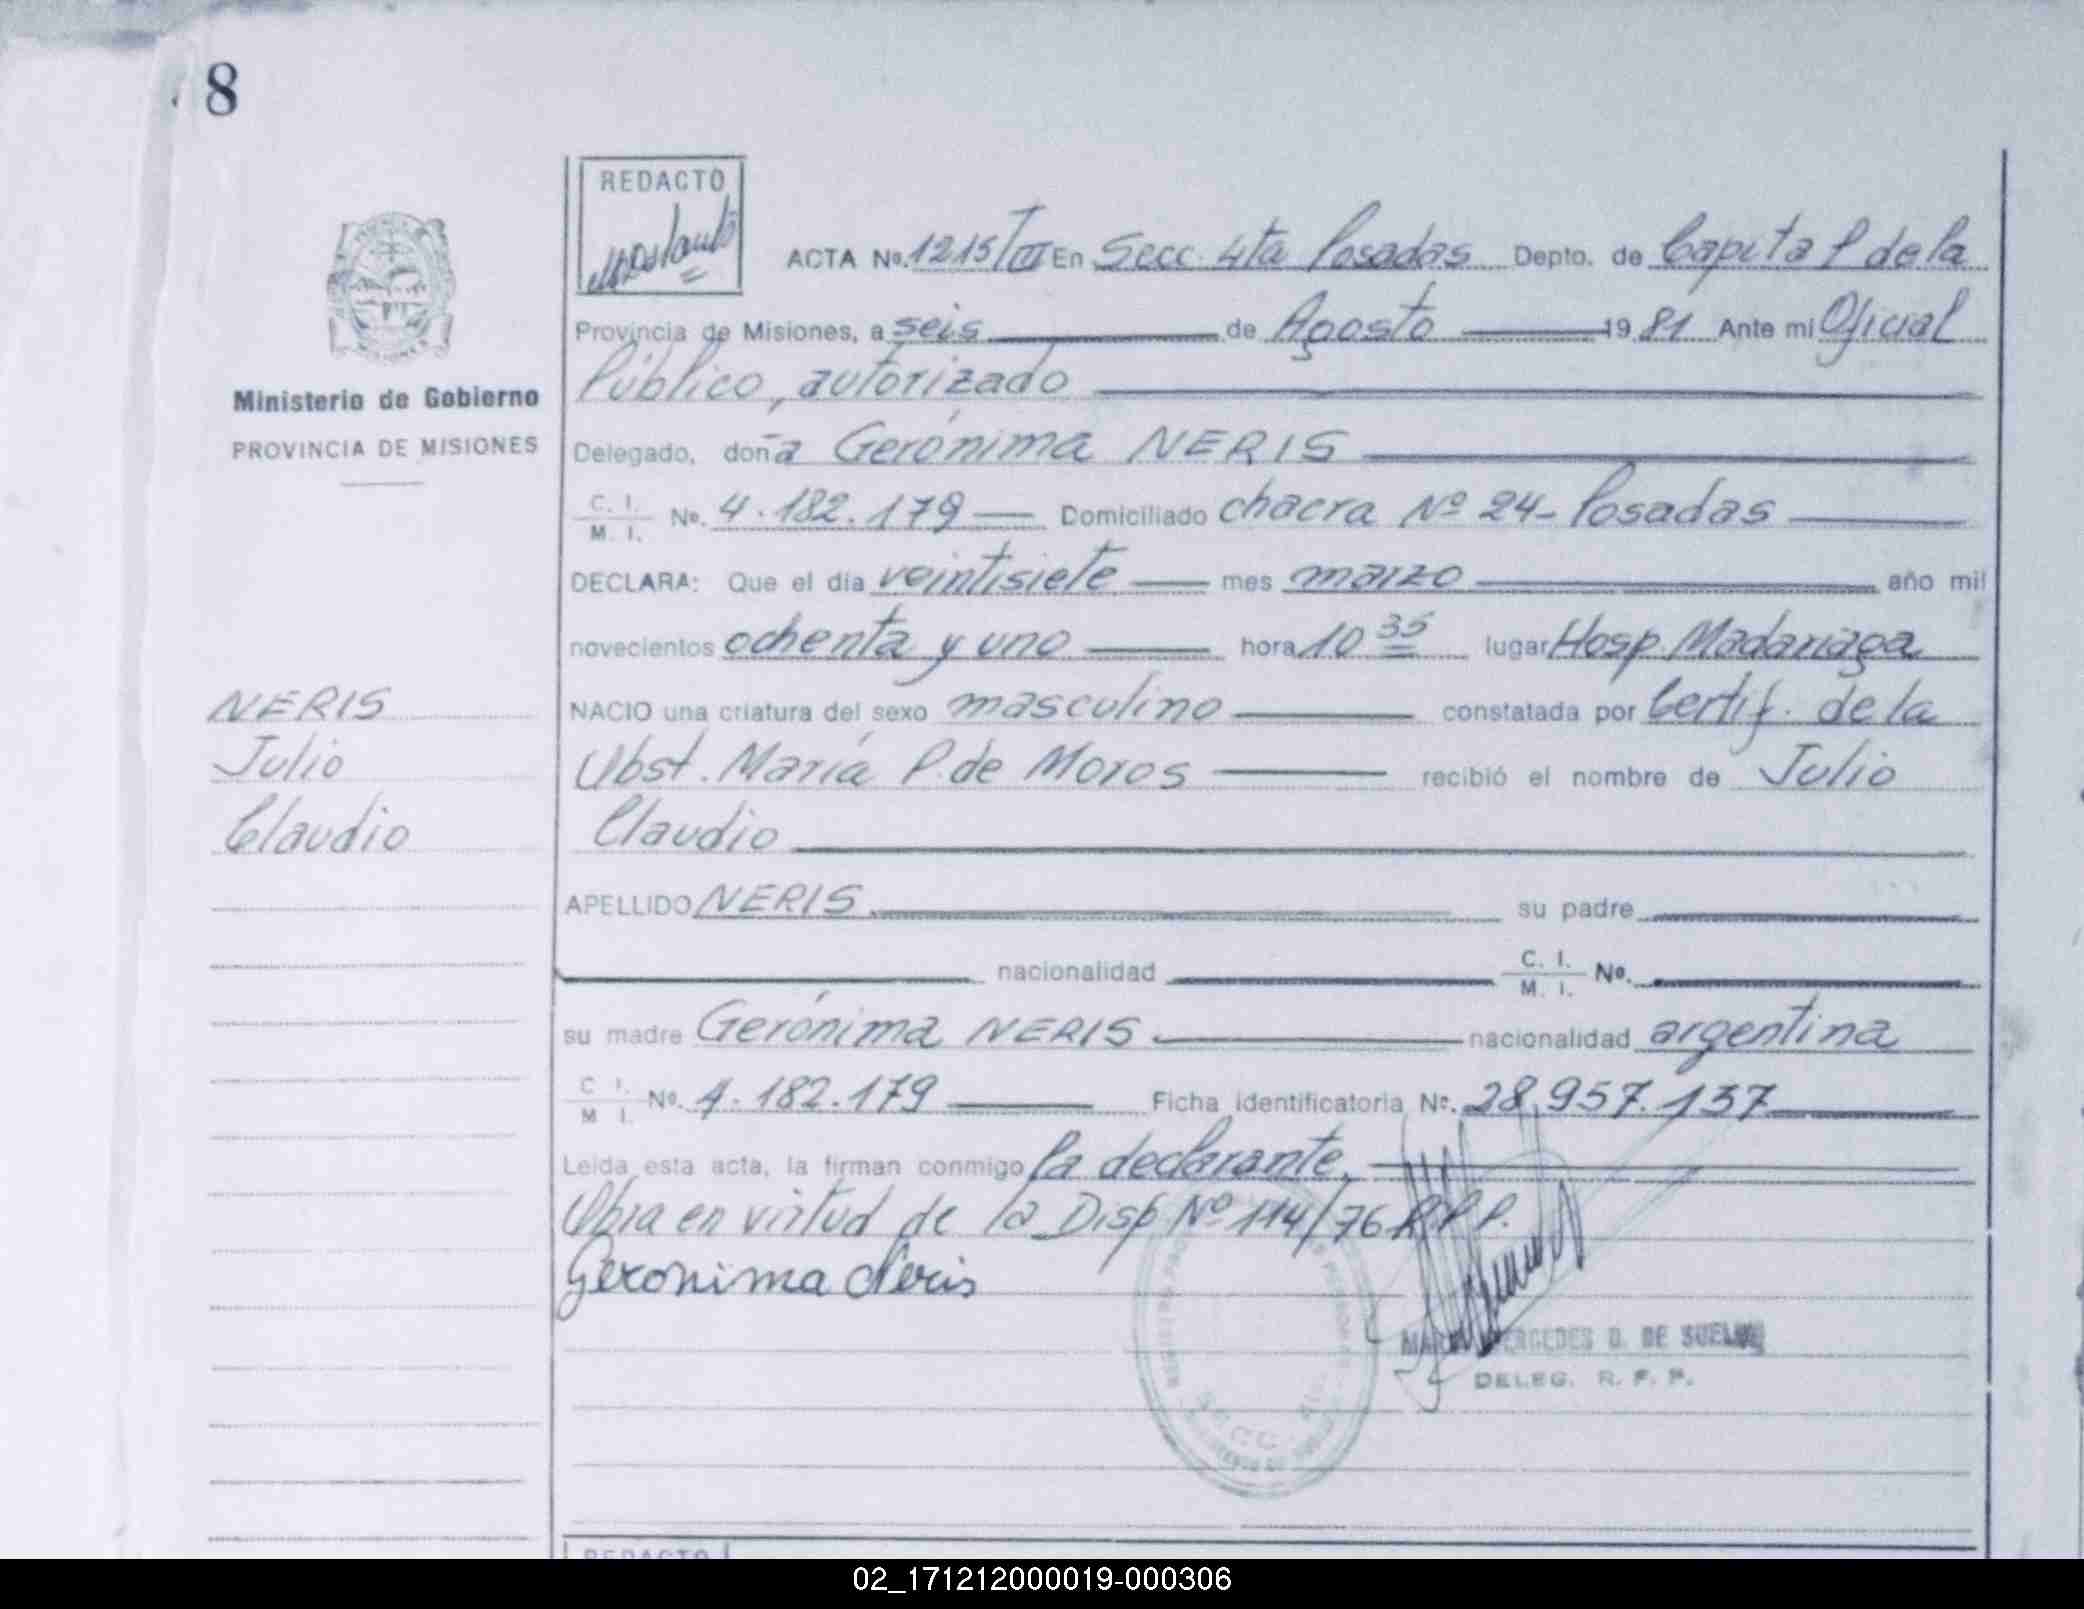 8
REDACTO
ACTA Nº. 1215/III En Secc. 4ta Posadas Depto. de Capital de la
Provincia de Misiones, a seis de Agosto 1981 Ante mi Oficial
Público, autorizado
Ministerio de Gobierno
PROVINCIA DE MISIONES
Delegado, doña Gerónima NERIS
C. I. M. I. Nº. 4.182.179 Domiciliado chacra Nº 24- Posadas
DECLARA: Que el día veintisiete mes marzo año mil
novecientos ochenta y uno hora 10 35 lugar Hosp. Madariaga
NERIS
Julio
Claudio
NACIO una criatura del sexo masculino constatada por Certif. de la
Obst. María P. de Moros recibió el nombre de Julio
Claudio
APELLIDO NERIS su padre
nacionalidad C. I. M. I. Nº.
su madre Gerónima NERIS nacionalidad argentina
C. I. M. I. Nº. 4.182.179 Ficha identificatoria Nº. 28.957.137
Leída esta acta, la firman conmigo la declarante.
Obra en virtud de la Disp. Nº 114/76 R.P.P.
Geronima Neris
MERCEDES D. DE
DELEG. R. P. P.
REDACTO
02_171212000019-000306